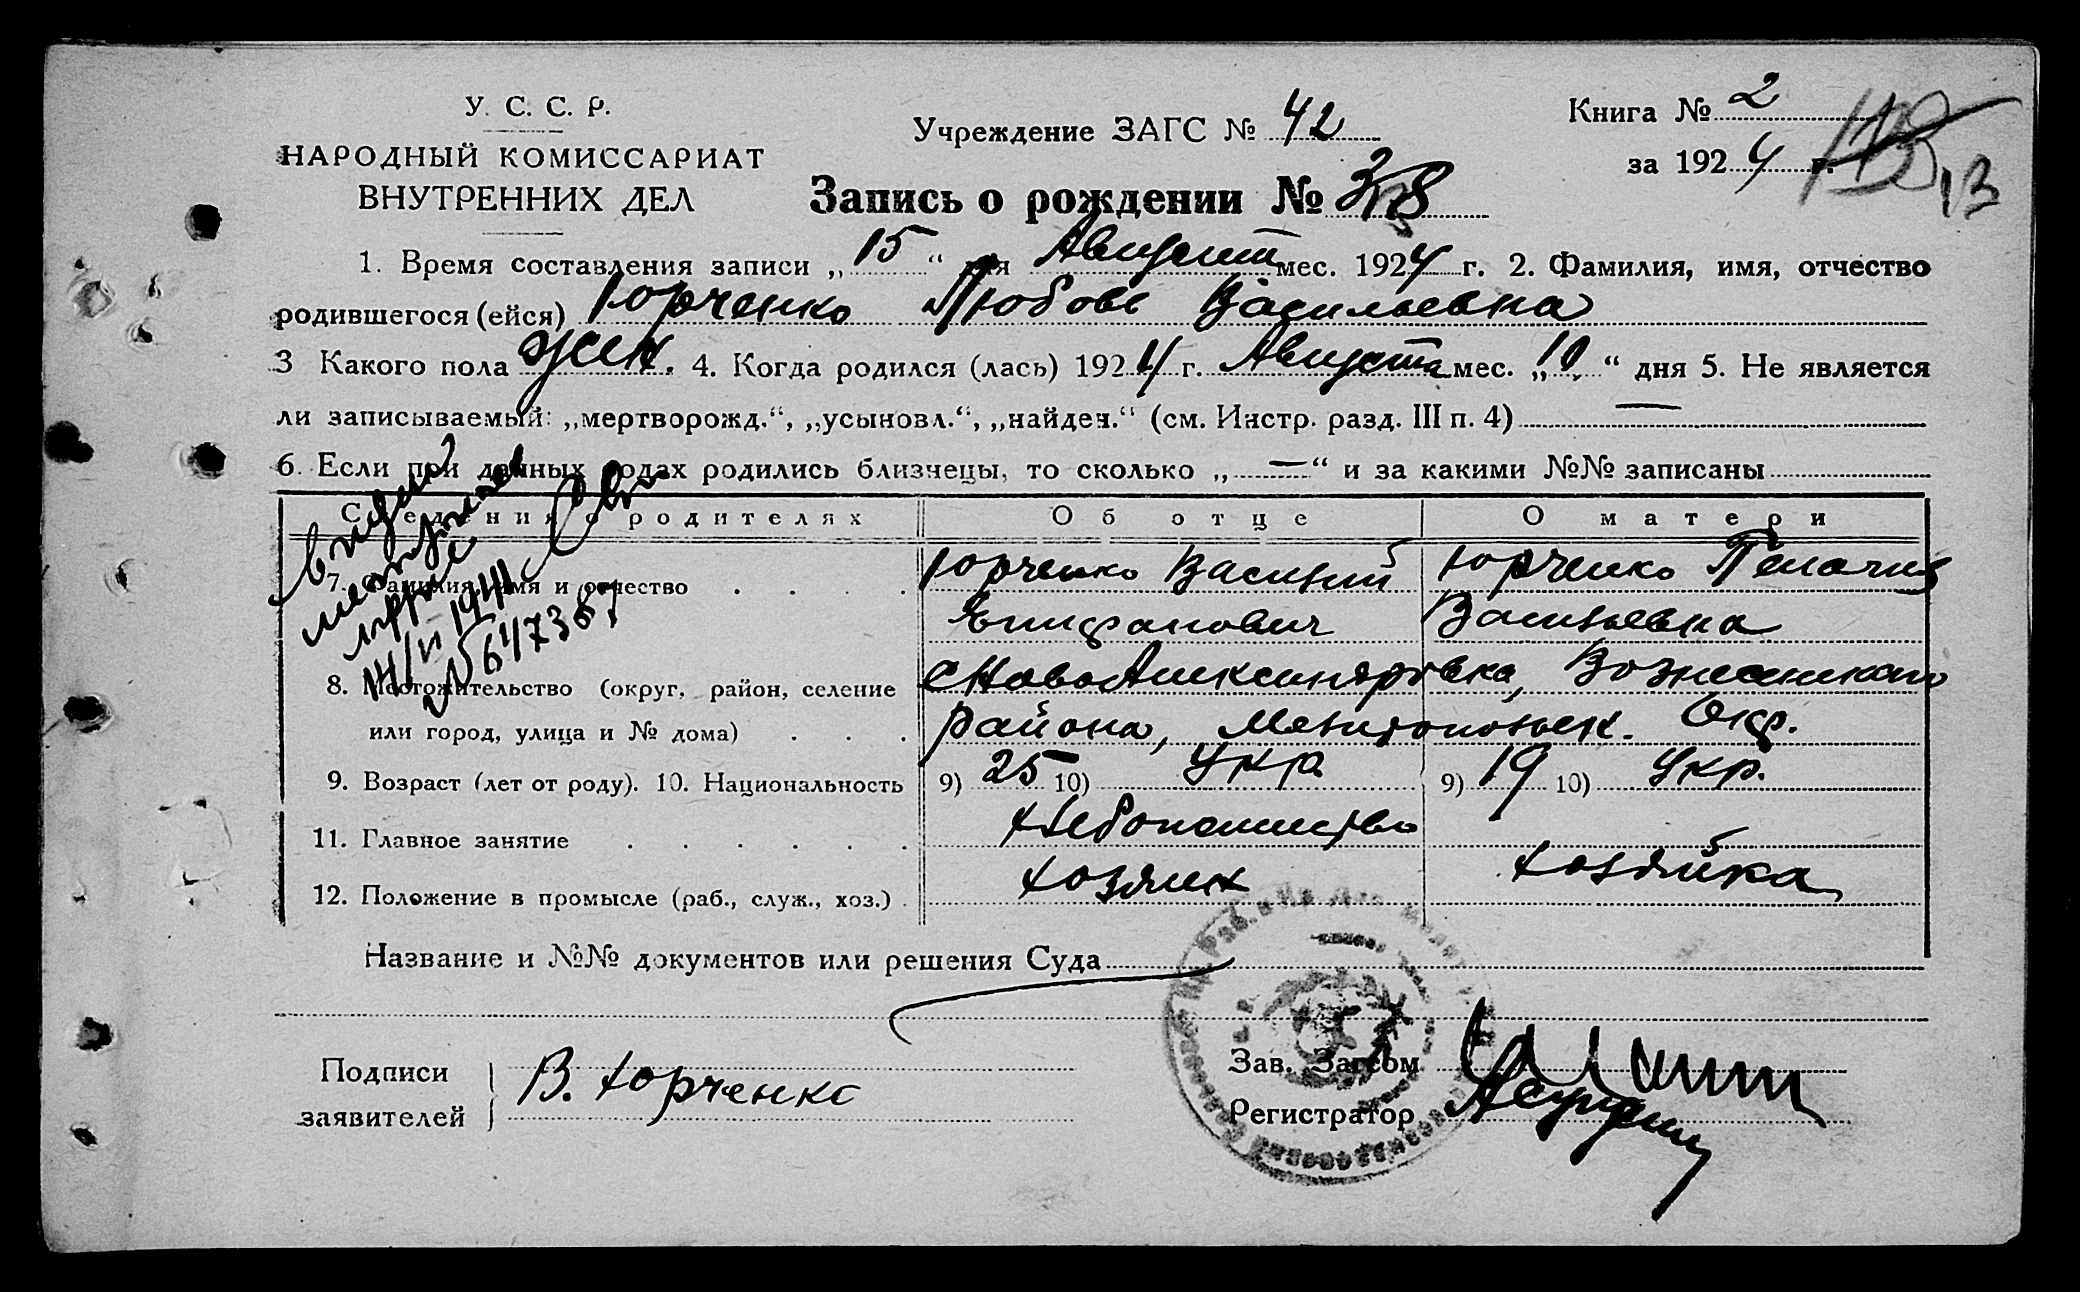 У. С. С. Р.
НАРОДНЫЙ КОМИССАРИАТ
ВНУТРЕННИХ ДЕЛ
Учреждение ЗАГС № 42
Книга № 2
за 1924 г.
13
Запись о рождении № 38
1. Время составления записи „15“ дня Август мес. 1924 г. 2. Фамилия, имя, отчество
родившегося (ейся) Юрченко Любовь Васильевна
3 Какого пола жен. 4. Когда родился (лась) 1924 г. Августа мес. „10“ дня 5. Не является
ли записываемый: „мертворожд.“, „усыновл.“, „найден.“ (см. Инстр. разд. III п. 4) —
6. Если при данных родах родились близнецы, то сколько „—“ и за какими №№ записаны
Сведения о родителях Об отце О матери
7. Фамилия, имя и отчество Юрченко Василий Юрченко Пелагия
Епифанович Васильевна
8. Местожительство (округ, район, селение с НовоАлександровка, Вознесенского
или город, улица и № дома) района, Мелитопольск. Окр.
9. Возраст (лет от роду). 10. Национальность 9) 25 10) Укр. 9) 19 10) Укр.
11. Главное занятие Хлебопашество
12. Положение в промысле (раб., служ., хоз.) хозяин хозяйка
Название и №№ документов или решения Суда
Подписи
заявителей В. Юрченко
Зав. Загсом
Регистратор
1941
№ 647387